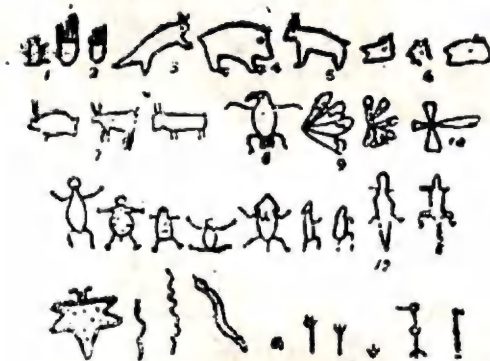 1 2 3 4 5 6
7 8 9 10
12